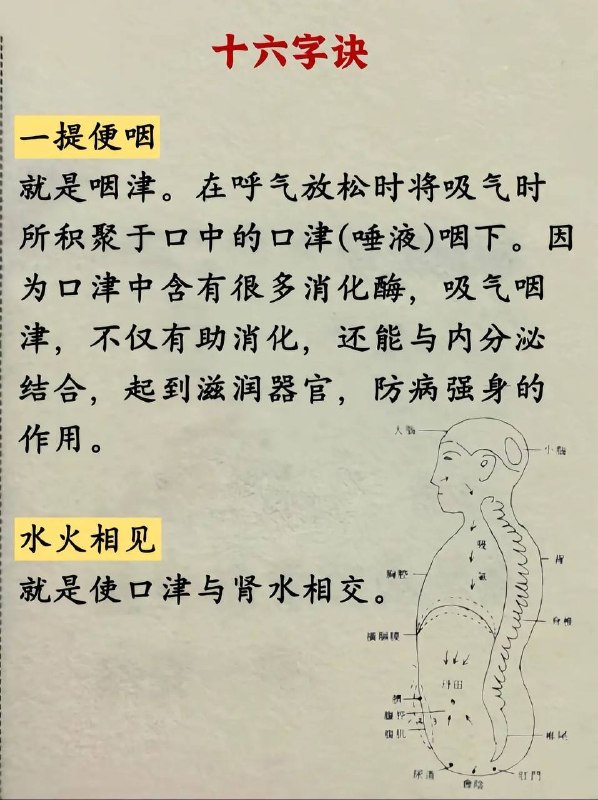 十六字诀
一提便咽
就是咽津。在呼气放松时将吸气时
所积聚于口中的口津(唾液)咽下。因
为口津中含有很多消化酶，吸气咽
津，不仅有助消化，还能与内分泌
结合，起到滋润器官，防病强身的
作用。
大腦
小腦
水火相见
就是使口津与肾水相交。
吸
氣
胸腔
背
脊椎
橫膈膜
丹田
臍
腹腔
腹肌
椎尾
尿道
會陰
肛門